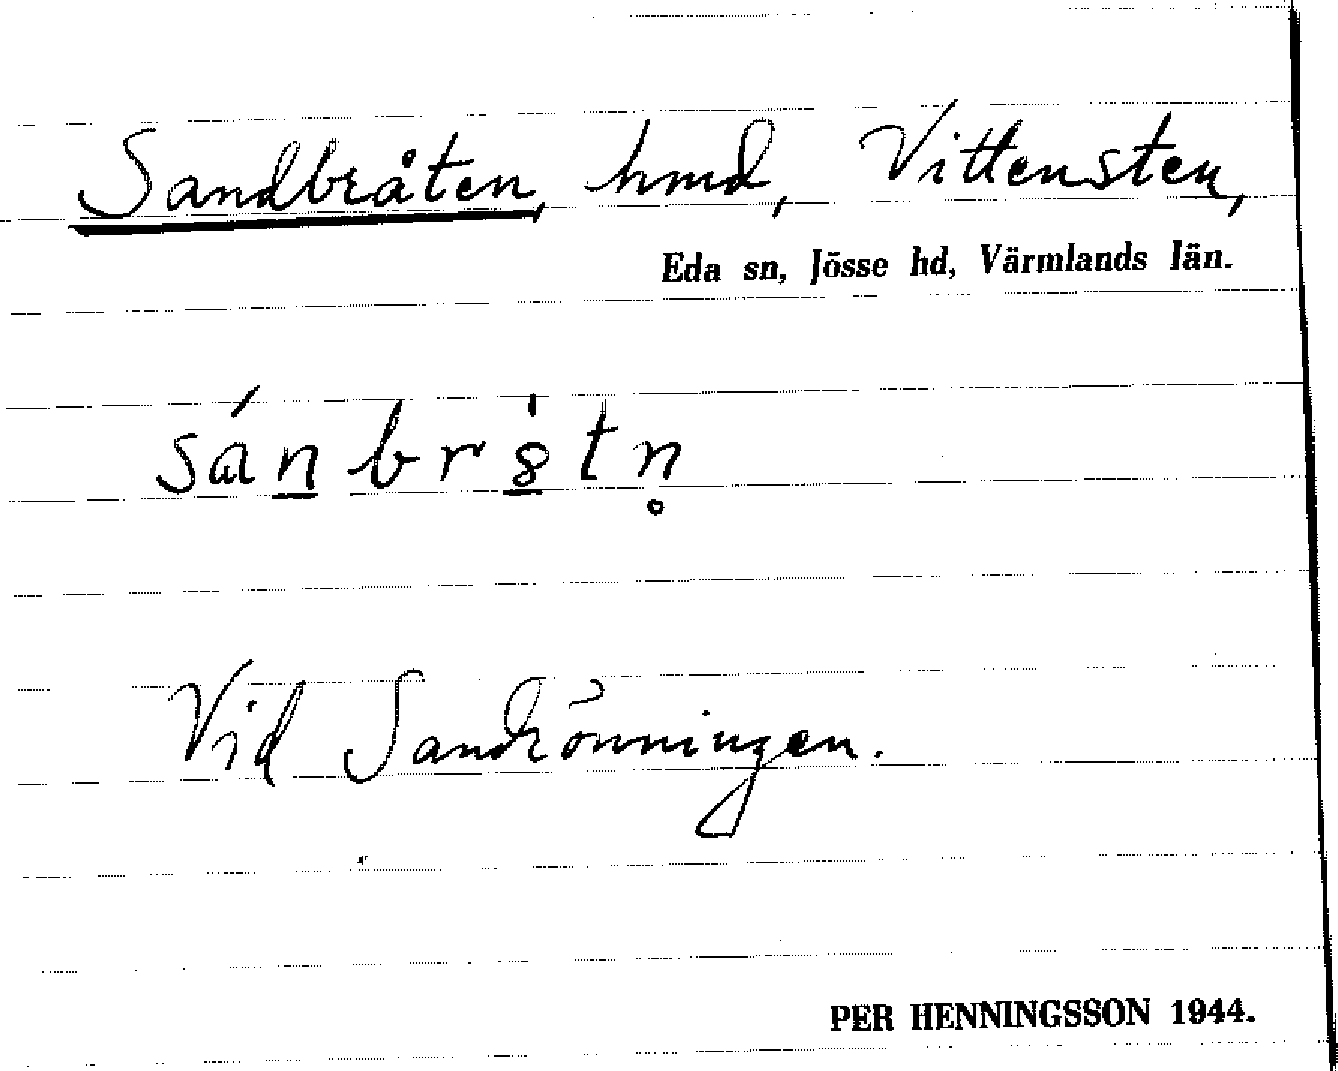 Sandbråten, hmd, Vittensten,
Eda sn, Jösse hd, Värmlands län.
Vid Sandrönningen.
PER HENNINGSSON 1944.